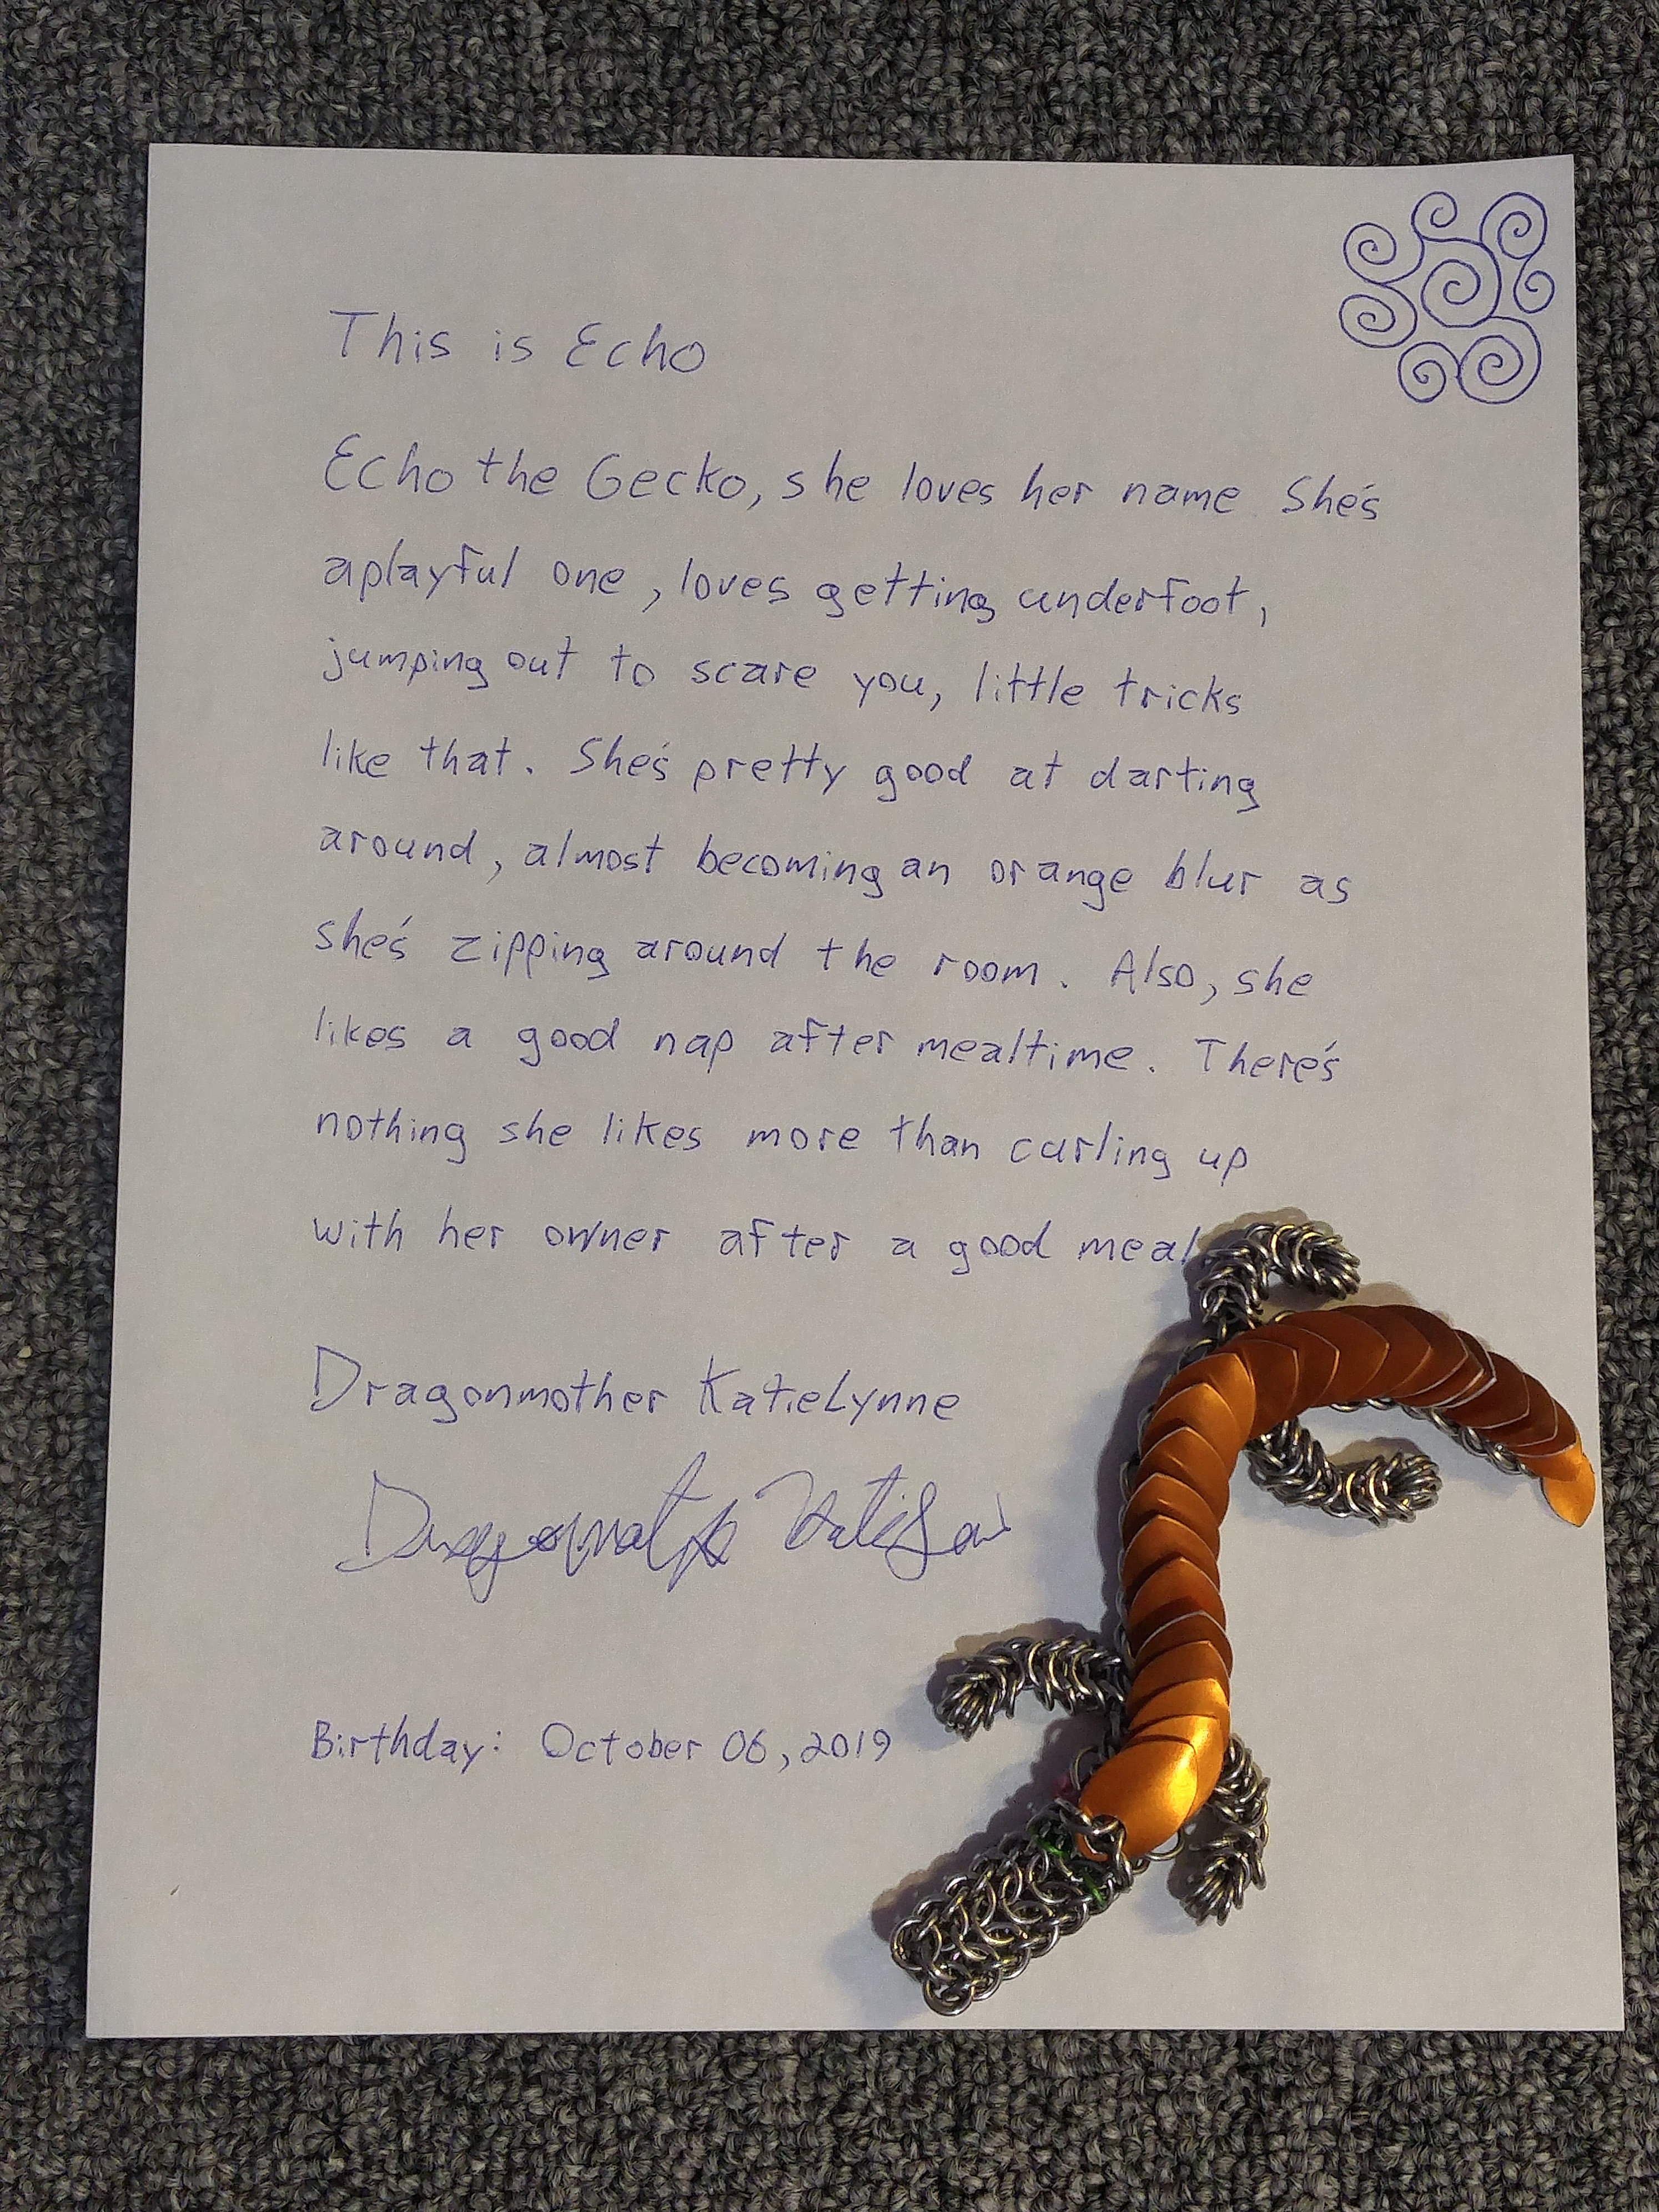 This is Echo
Echo the Gecko, she loves her name She's
aplayful one, loves getting underfoot,
jumping out to scare you, little tricks
like that. She's pretty good at darting
around, almost becoming an orange blur as
she's zipping around the room. Also, she
likes a good nap after mealtime. There's
nothing she likes more than curling up
with her owner after a good meal
Dragonmother KatieLynne
Birthday: October 06, 2019